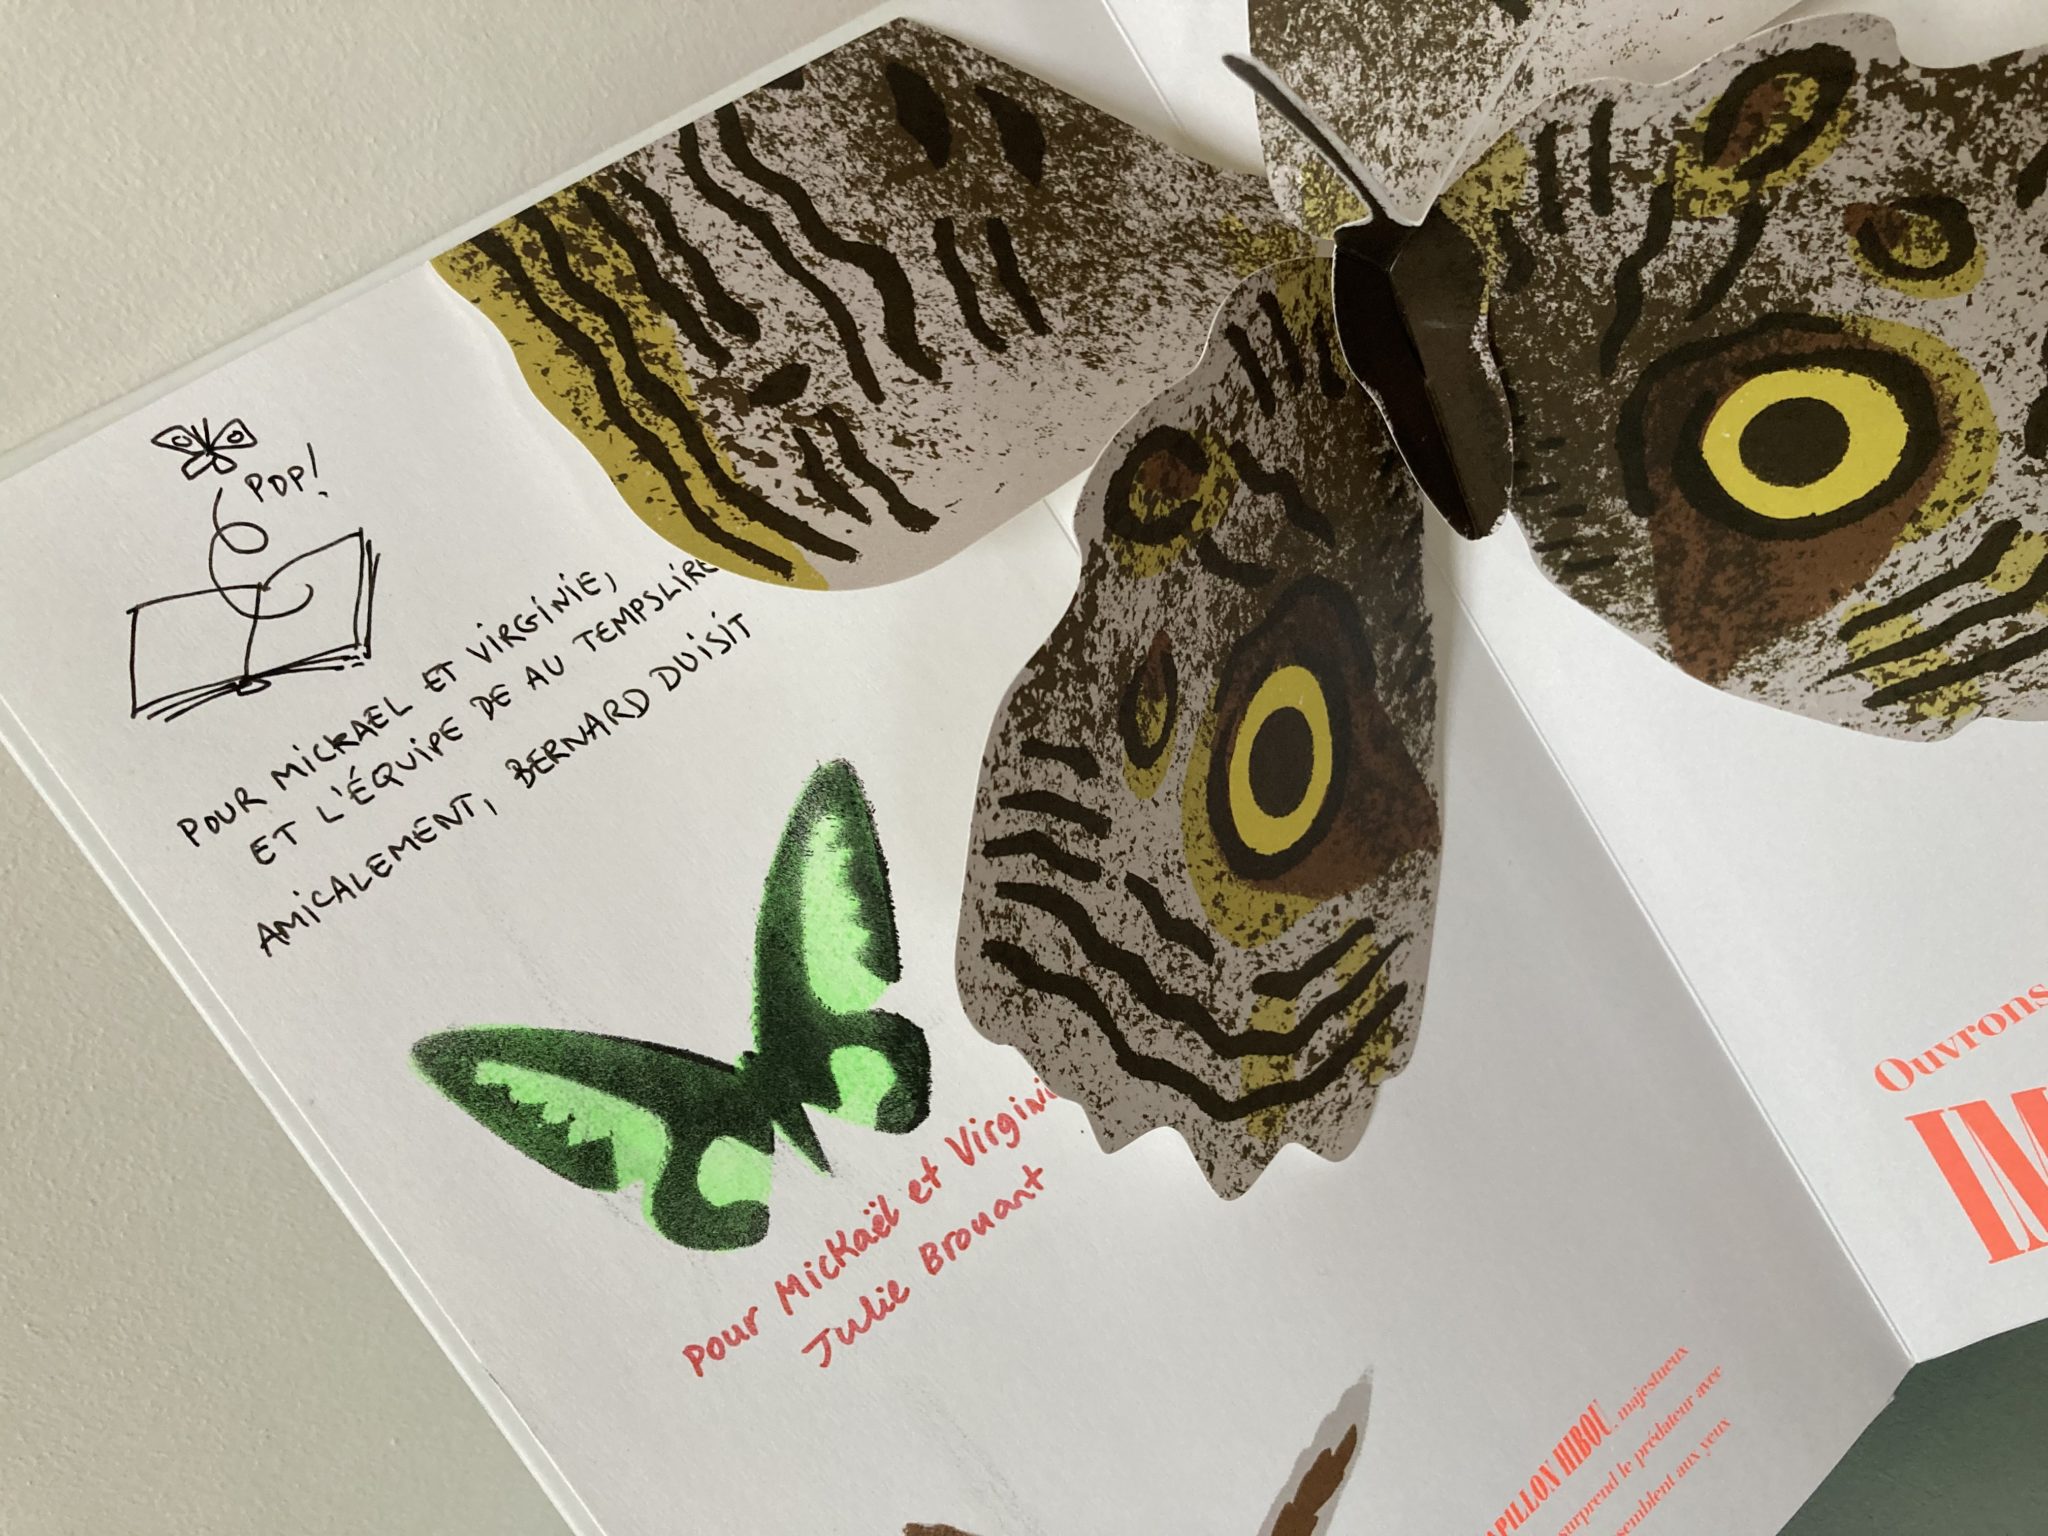 POP!
POUR MICKAEL ET VIRGINIE,
ET L'ÉQUIPE DE AU TEMPSLIRE
AMICALEMENT, BERNARD DUISIT
pour Mickaël et Virginie
Julie Brouant
Ouvrons
PAPILLON HIBOU, majestueux
surprend le prédateur avec
aux yeux